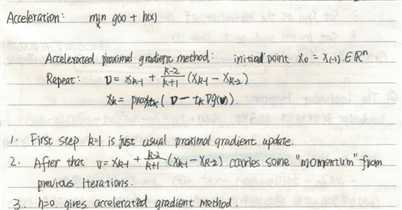 Acceleration: min g(x) + h(x)
Accelerated proximal gradient method: initial point x₀ = x₍₋₁₎ ∈ ℝⁿ
Repeat: v = xₖ₋₁ + (k-2)/(k+1) (xₖ₋₁ - xₖ₋₂)
xₖ = prox_tₖ (v - tₖ∇g(v))
1. First step k=1 is just usual proximal gradient update.
2. After that v = xₖ₋₁ + (k-2)/(k+1) (xₖ₋₁ - xₖ₋₂) carries some "momentum" from
previous iterations.
3. h=0 gives accelerated gradient method.